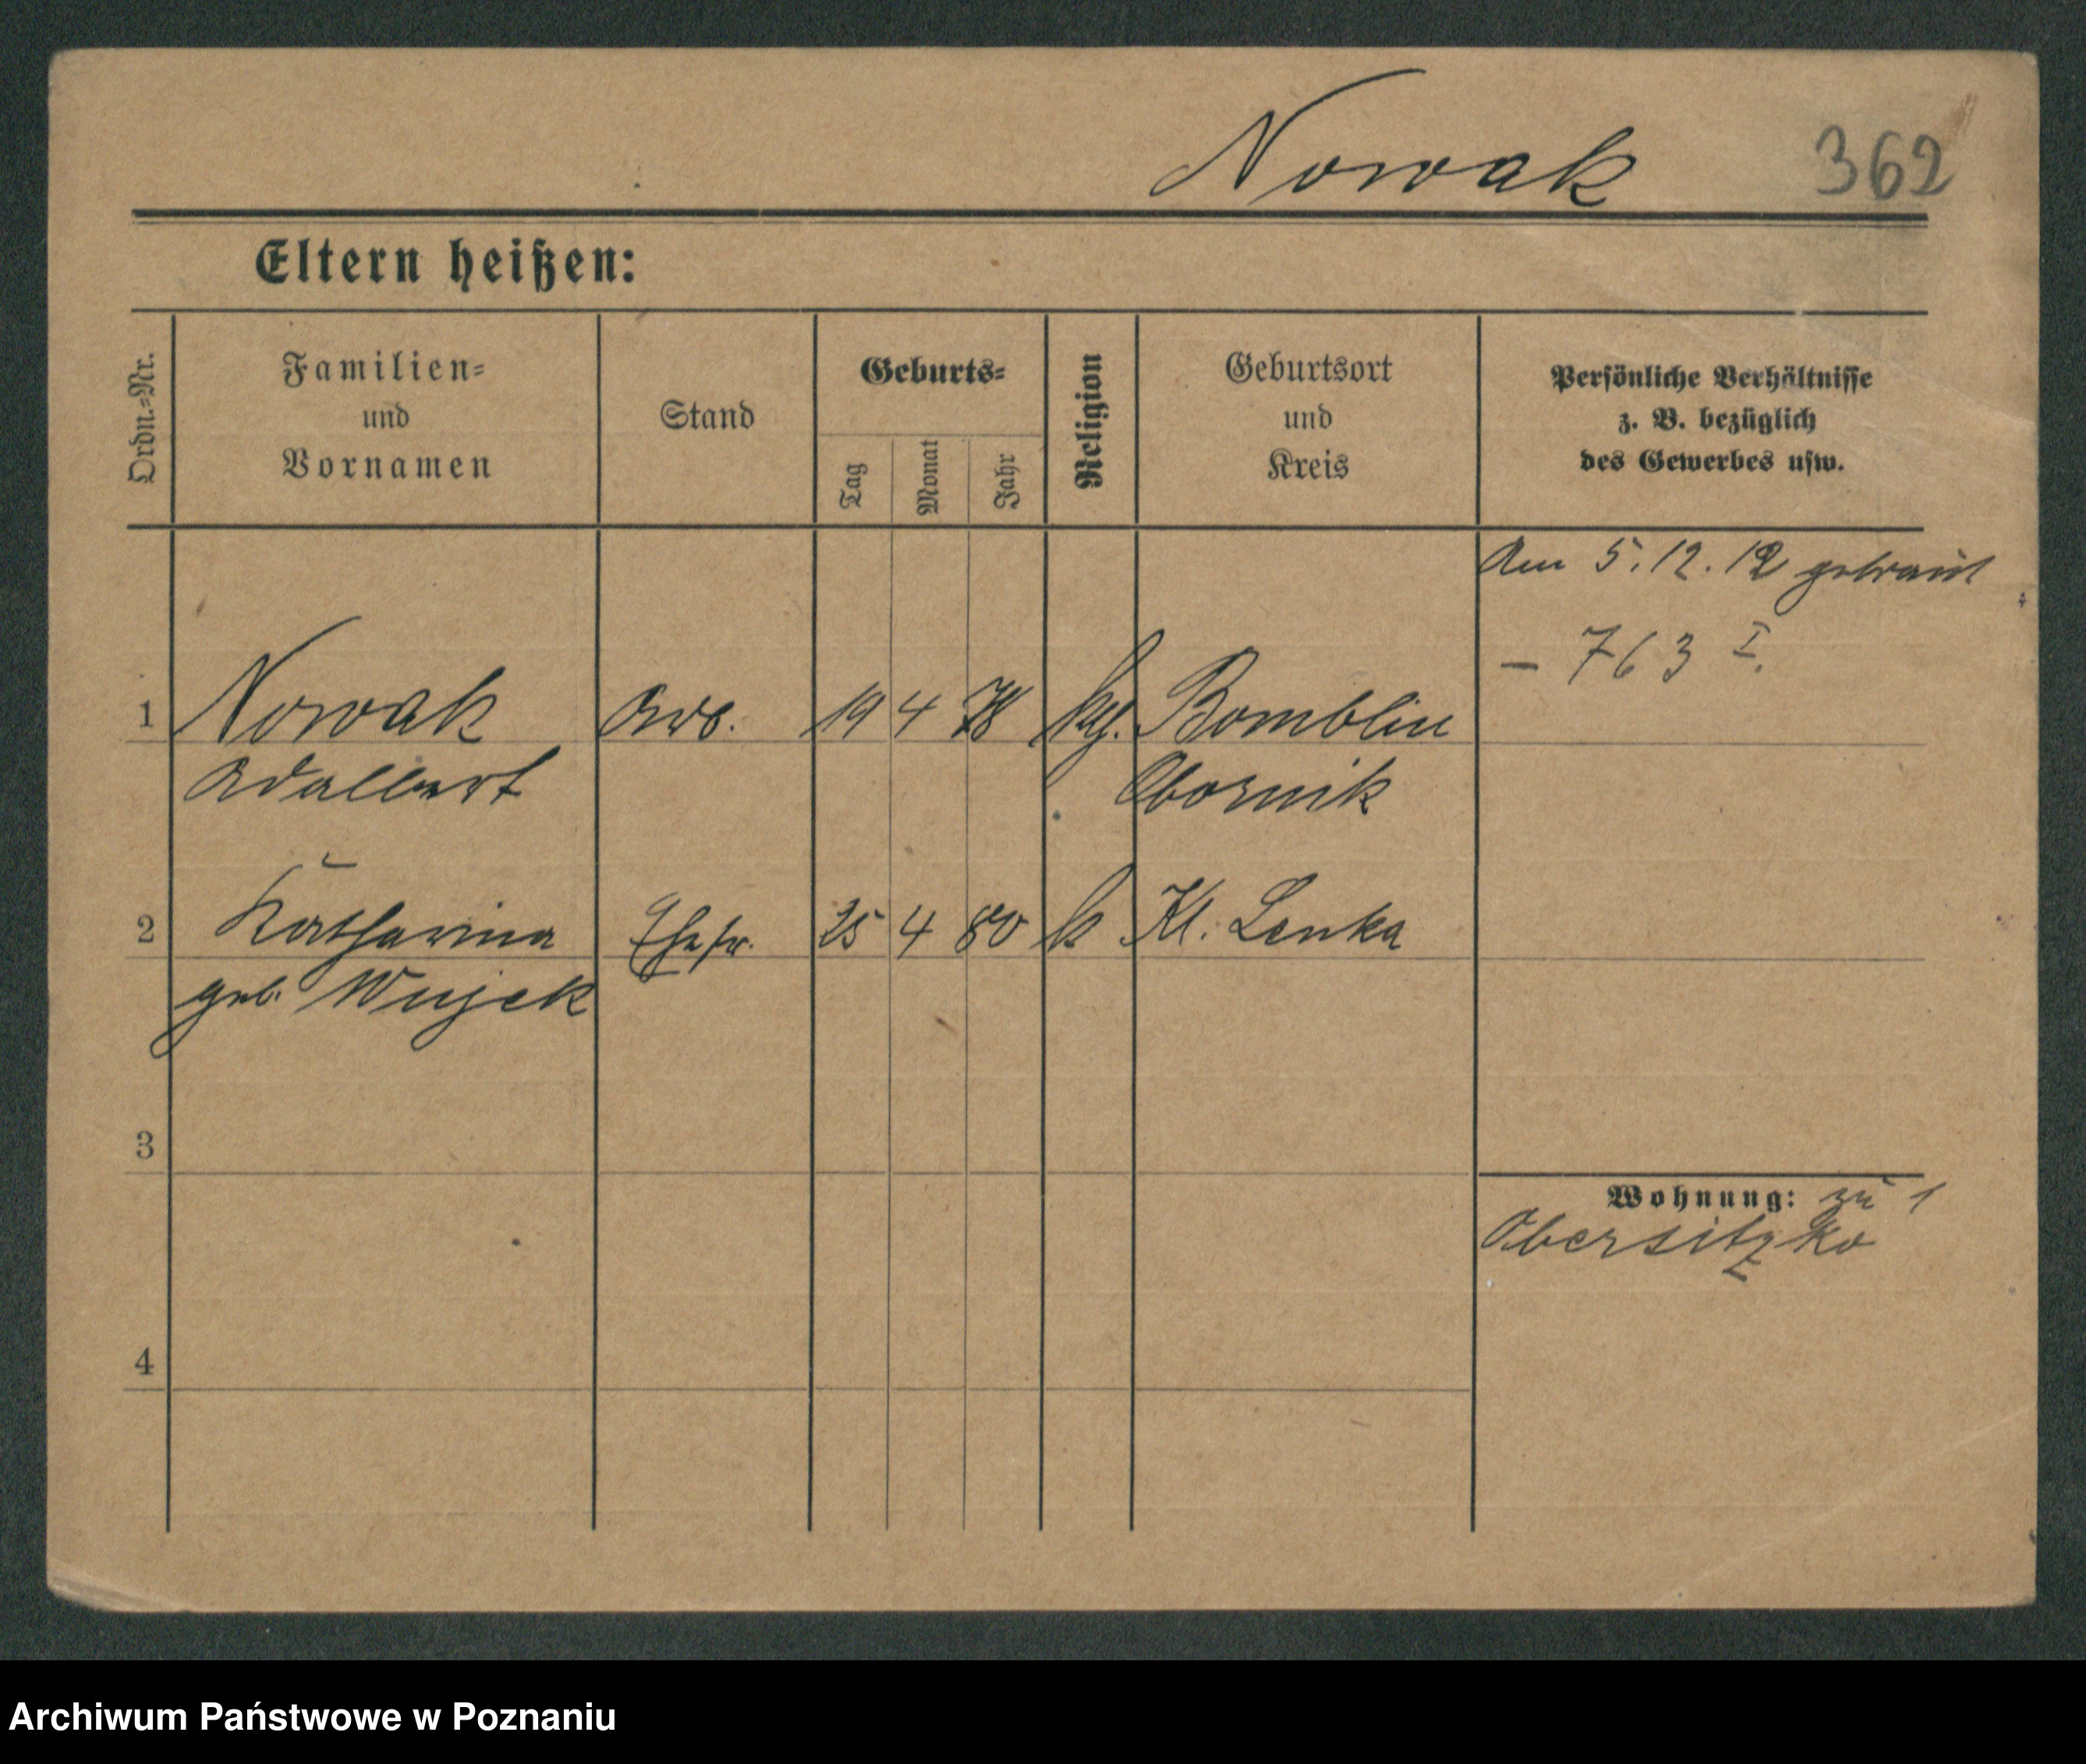 Nowak 362
Eltern heißen:
Ordn.-Nr.
Familien-
und
Vornamen
Stand
Geburts-
Tag
Monat
Jahr
Religion
Geburtsort
und
Kreis
Persönliche Verhältnisse
z. B. bezüglich
des Gewerbes usw.
Am 5.12.12 getraut
– 763 I.
1 Nowak Arb. 19 4 78 kg. Bomblin
Adalbert Obornik
2 Katharina Ehefr. 25 4 80 k Kl. Lenka
geb. Wujek
3
Wohnung: zu 1
Obersitzko
4
Archiwum Państwowe w Poznaniu